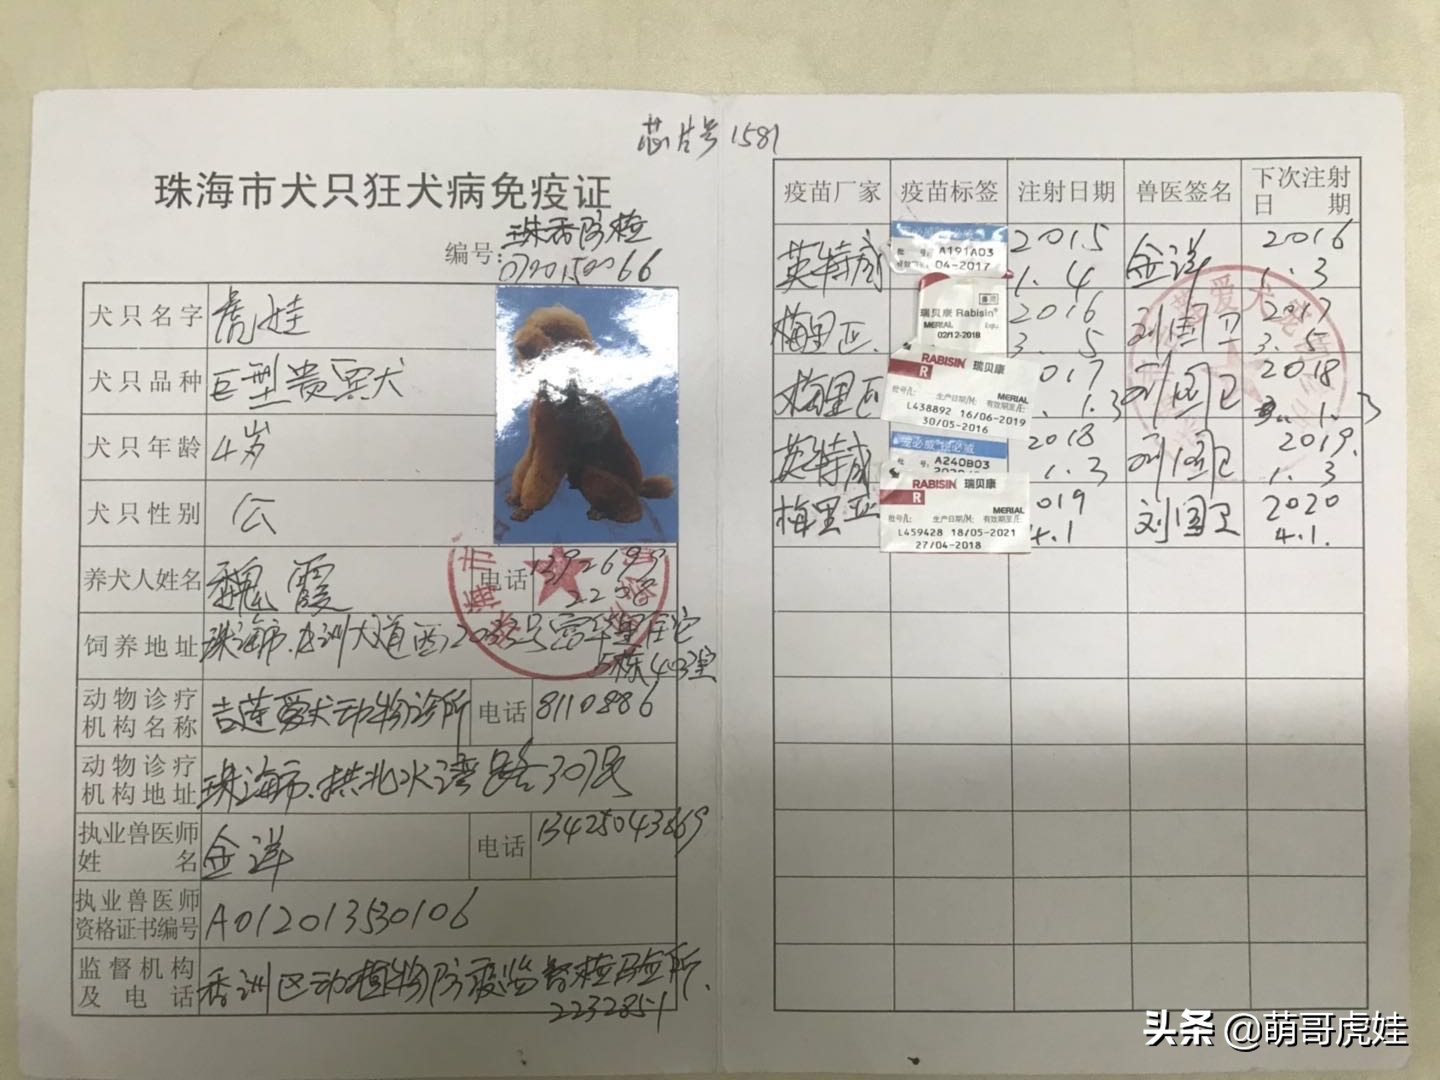 芯片号1581
珠海市犬只狂犬病免疫证
编号：珠香防检
0720150066
犬只名字 虎娃
犬只品种 巨型贵宾犬
犬只年龄 4岁
犬只性别 公
养犬人姓名 魏霞 电话
饲养地址 珠海市
5栋403室
动物诊疗机构名称 吉莲爱犬动物诊所 电话 8110886
动物诊疗机构地址 珠海市.拱北水湾路307号
执业兽医师姓名 金洋 电话 13425043869
执业兽医师资格证书编号 A012013530106
监督机构及电话 香洲区动植物防疫监督检验所.
2232851
疫苗厂家 疫苗标签 注射日期 兽医签名 下次注射日期
英特威 批号: A191A03 04-2017 2015 1.4 金洋 2016 1.3
梅里亚. 瑞贝康 Rabisin MERIAL 02/12-2018 2016 3.5 刘国卫 2017 3.5
梅里亚 RABISIN 瑞贝康 R MERIAL 批号/L: 生产日期/M: 有效期至/E: L438892 16/06-2019 30/05-2016 017 1.3 刘国卫 2018 1.3
英特威 批号: A240B03 2018 1.3 刘国卫 2019. 1.3
梅里亚 RABISIN 瑞贝康 R MERIAL 批号/L: 生产日期/M: 有效期至/E: L459428 18/05-2021 27/04-2018 019 4.1 刘国卫 2020 4.1.
头条 @萌哥虎娃